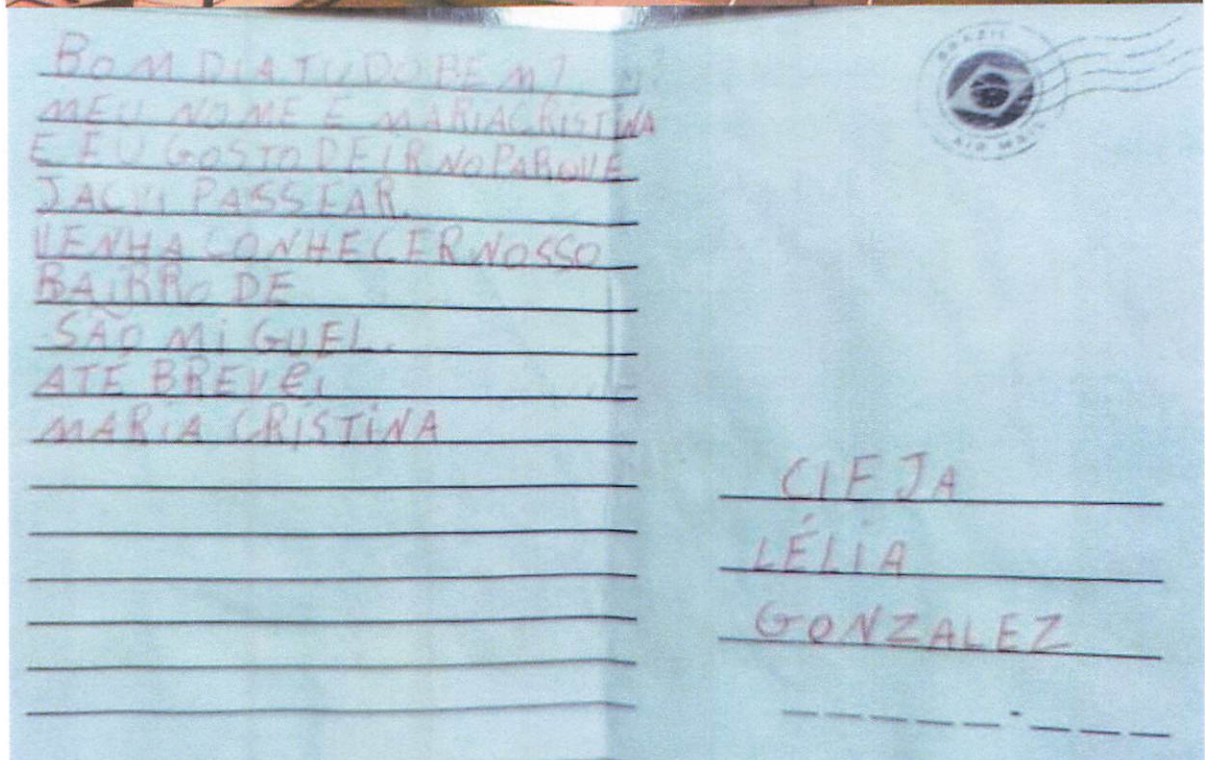 BOM DIA TUDO BEM?
MEU NOME É MARIA CRISTINA
E EU GOSTO DE IR NO PARQUE
JACUI PASSEAR.
VENHA CONHECER NOSSO
BAIRRO DE
SÃO MIGUEL.
ATÉ BREVE,
MARIA CRISTINA
BRAZIL
AIR MAIL
CIEJA
LÉLIA
GONZALEZ